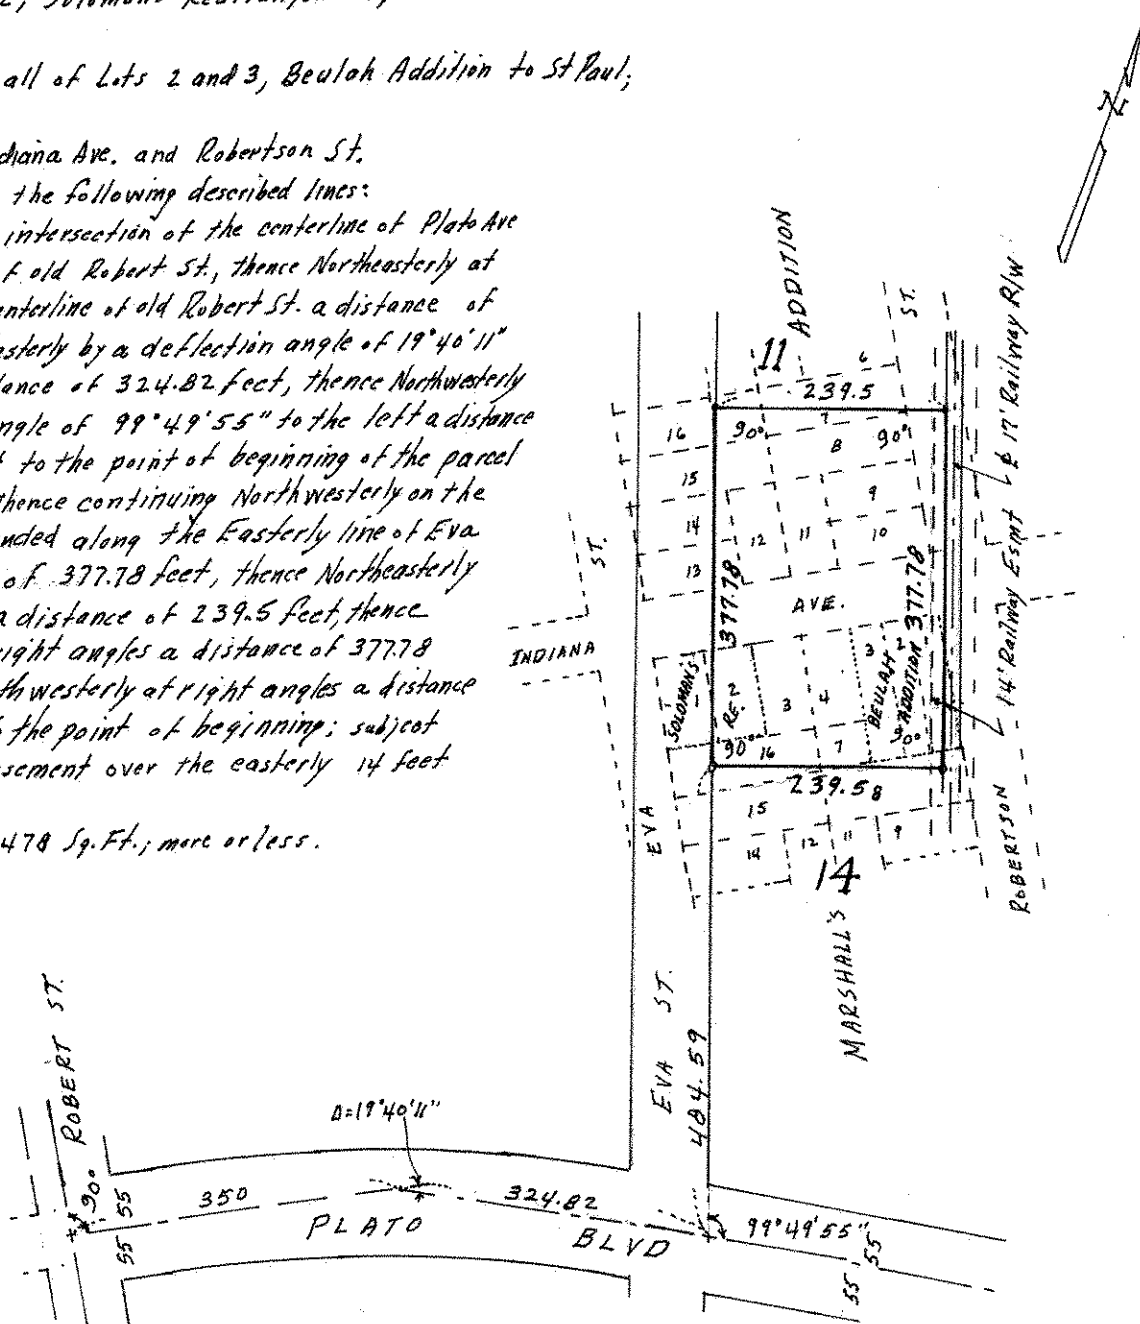 all of Lots 2 and 3, Beulah Addition to St Paul;
diana Ave. and Robertson St.
the following described lines:
intersection of the centerline of Plato Ave
f old Robert St., thence Northeasterly at
enterline of old Robert St. a distance of
sterly by a deflection angle of 19°40'11"
ance of 324.82 feet, thence Northwesterly
ngle of 99°49'55" to the left a distance
to the point of beginning of the parcel
thence continuing Northwesterly on the
nded along the Easterly line of Eva
of 377.78 feet, thence Northeasterly
a distance of 239.5 feet, thence
ight angles a distance of 377.78
thwesterly at right angles a distance
the point of beginning; subject
sement over the easterly 14 feet
478 Sq. Ft.; more or less.
N
11 ADDITION
ST.
6
239.5
7
16
90°
8
90°
15
9
14
12
11
10
13
377.78
377.78
ST.
AVE.
INDIANA
SOLOMAN'S
RE.
2
3
4
3
2
BEULAH
ADDITION
90°
16
7
90°
239.58
15
14
12
11
9
14
MARSHALL'S
17' Railway R/W
14' Railway Esmt
ROBERTSON
EVA
EVA ST.
484.59
ROBERT ST.
Δ=19°40'11"
90°
55
55
350
324.82
PLATO
BLVD
99°49'55"
55
55